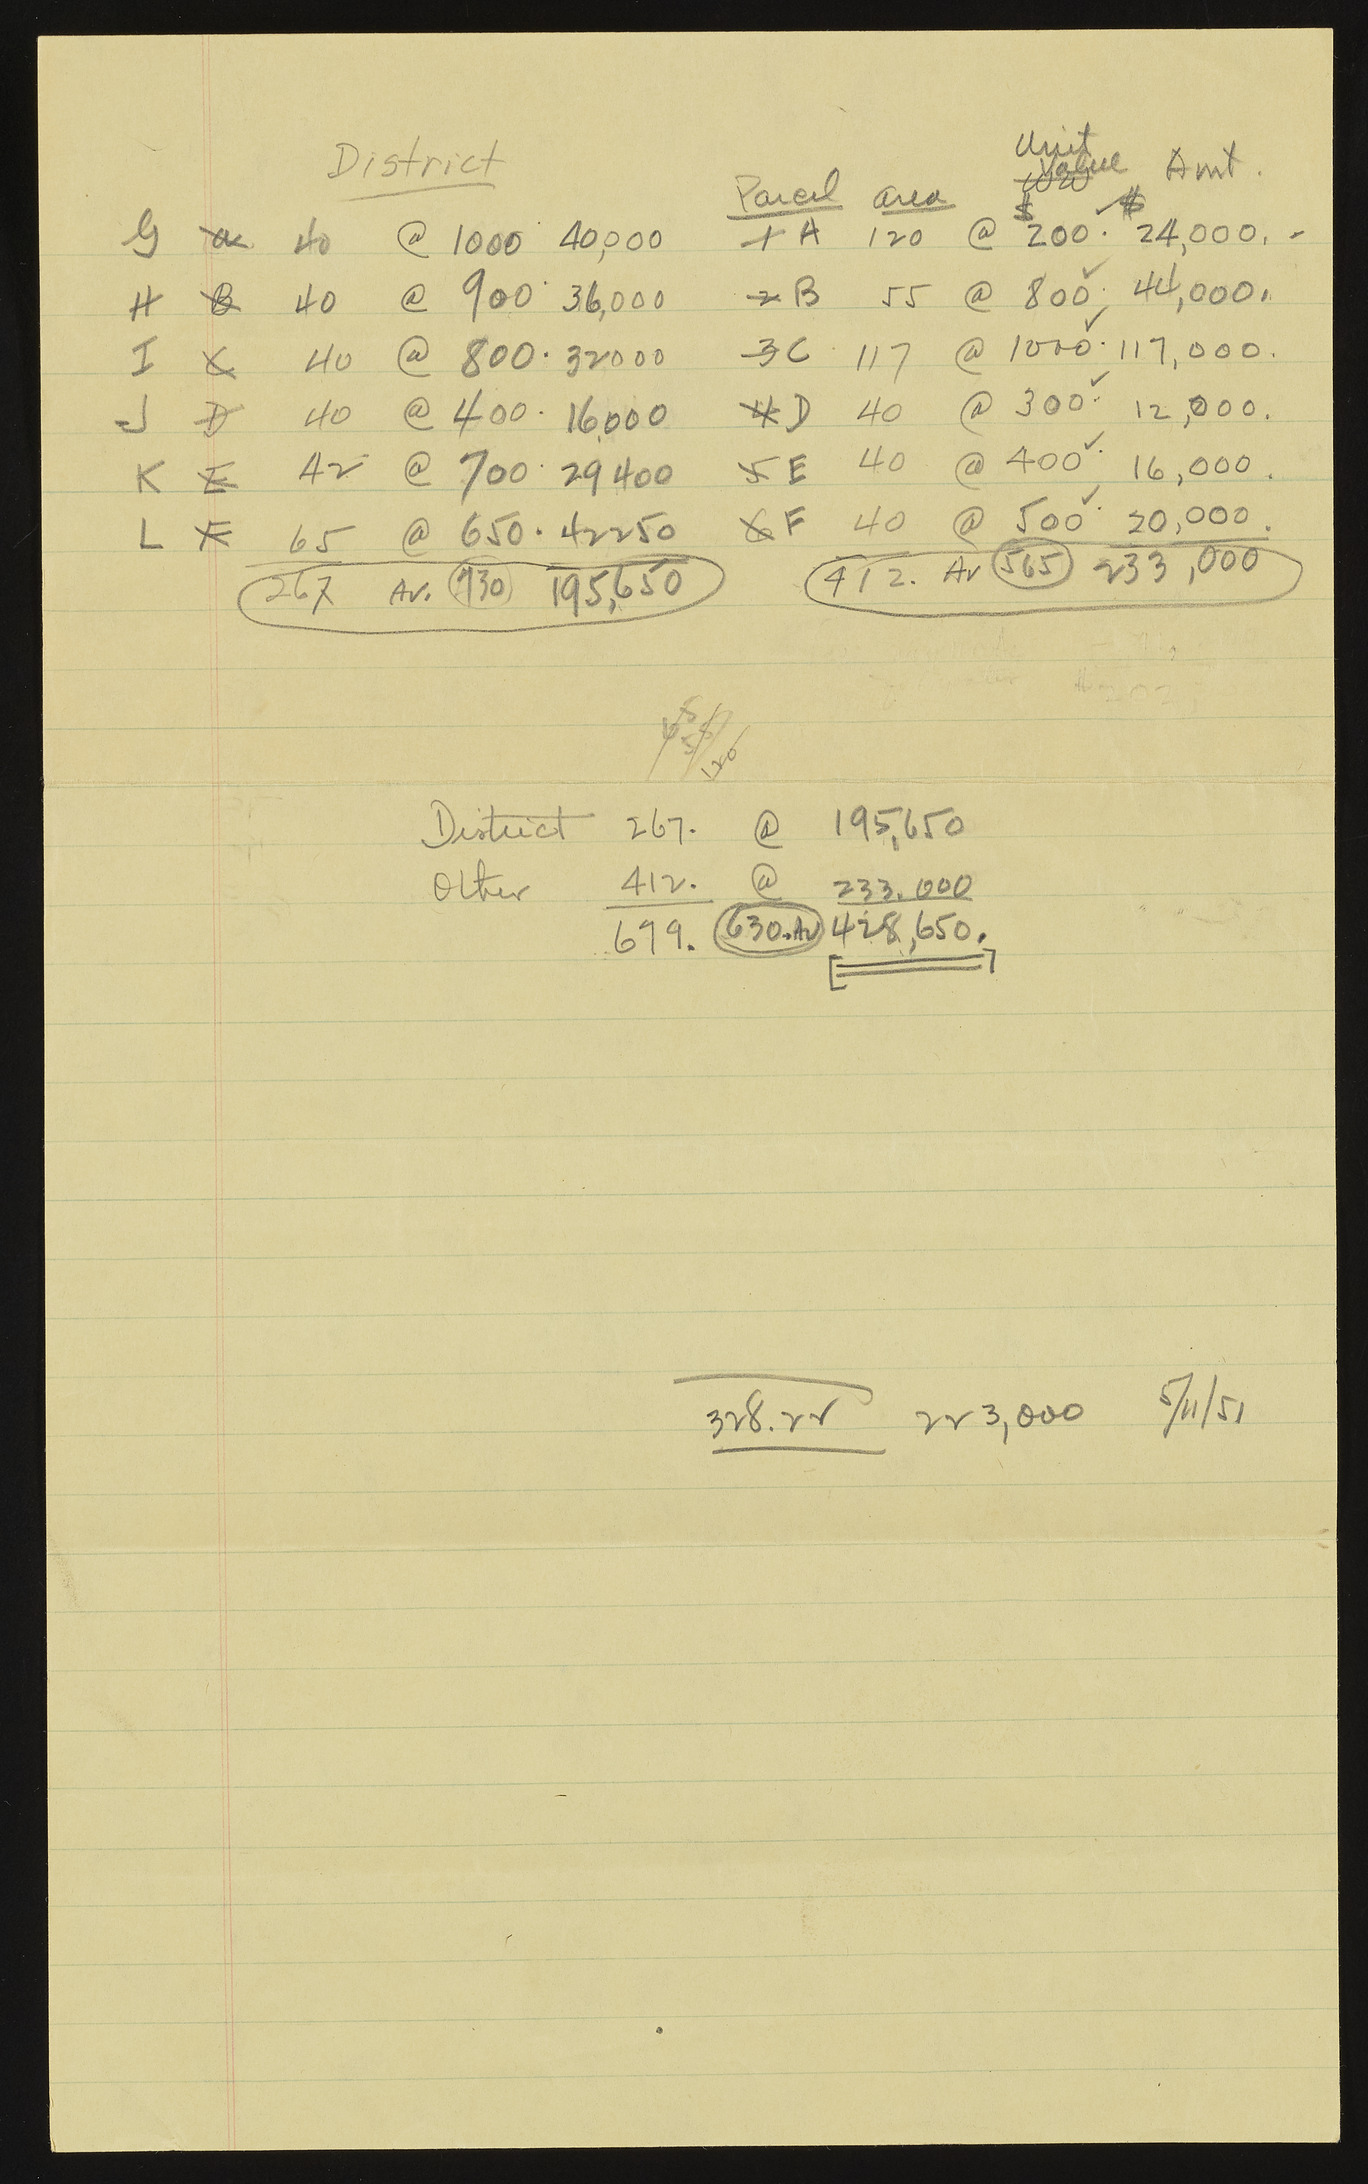 District
Unit
Value Amt.
Parcel area
$ $
G a 40 @ 1000 40,000 1 A 120 @ 200. 24,000.-
H B 40 @ 900 36,000 2 B 55 @ 800. 44,000.
I C 40 @ 800. 32000 3 C 117 @ 1000. 117,000.
J D 40 @ 400. 16,000 4 D 40 @ 300. 12,000.
K E 42 @ 700. 29400 5 E 40 @ 400. 16,000.
L F 65 @ 650. 42250 6 F 40 @ 500. 20,000.
267 Av. 730 195,650 412. Av 565 233,000
65
55
120
District 267. @ 195,650
Other 412. @ 233.000
679. 630.Av 428,650.
328.22 223,000 5/11/51